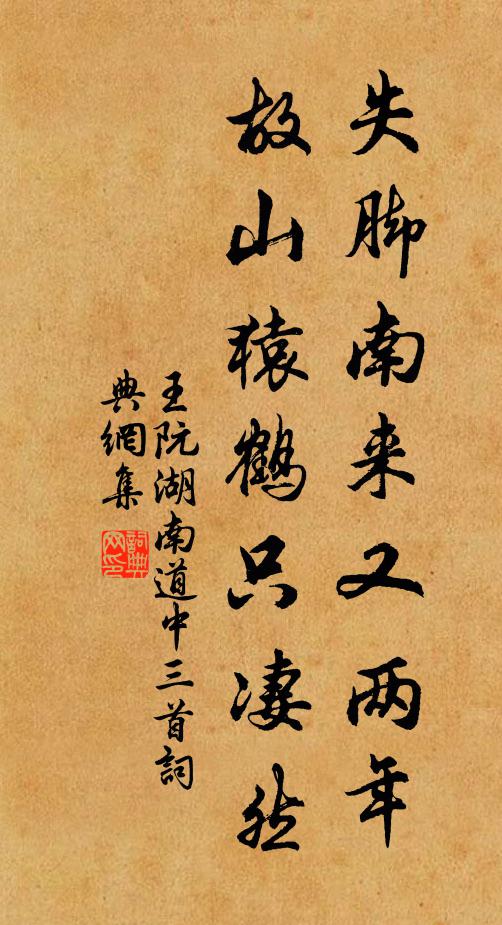 失脚南来又两年
故山猿鹤只凄然
王阮湖南道中三首詞
典網集
詞典
网印